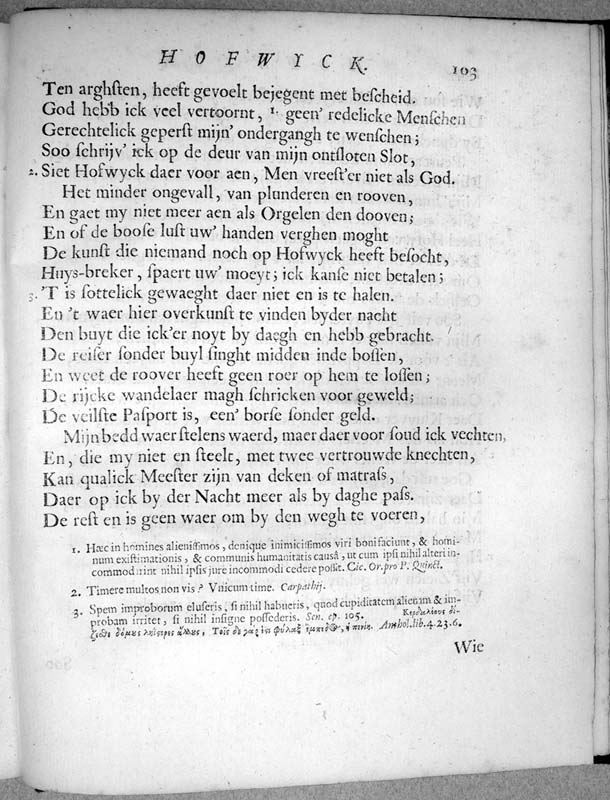 HOFWYCK. 103
Ten arghſten, heeft gevoelt bejegent met beſcheid.
God hebb ick veel vertoornt, 1. geen' redelicke Menſchen
Gerechtelick geperſt mijn' ondergangh te wenſchen;
Soo ſchrijv' ick op de deur van mijn ontſloten Slot,
2. Siet Hofwyck daer voor aen, Men vreeſt'er niet als God.
Het minder ongevall, van plunderen en rooven,
En gaet my niet meer aen als Orgelen den dooven;
En of de booſe luſt uw' handen verghen moght
De kunſt die niemand noch op Hofwyck heeft beſocht,
Huys-breker, ſpaert uw' moeyt; ick kanſe niet betalen;
3. 'T is ſottelick gewaeght daer niet en is te halen.
En 't waer hier overkunſt te vinden byder nacht
Den buyt die ick'er noyt by daegh en hebb gebracht.
De reiſer ſonder buyl ſinght midden inde boſſen,
En weet de roover heeft geen roer op hem te loſſen;
De rijcke wandelaer magh ſchricken voor geweld;
De veilſte Paſport is, een' borſe ſonder geld.
Mijn bedd waer ſtelens waerd, maer daer voor ſoud ick vechten,
En, die my niet en ſteelt, met twee vertrouwde knechten,
Kan qualick Meeſter zijn van deken of matraſs,
Daer op ick by der Nacht meer als by daghe paſs.
De reſt en is geen waer om by den wegh te voeren,
1. Hæc in homines alieniſſimos, denique inimiciſſimos viri boni faciunt, & homi-
num exiſtimationis, & communis humanitatis causâ, ut cum ipſi nihil alteri in-
commodarint nihil ipſis jure incommodi cedere poſſit. Cic. Or. pro P. Quinct.
2. Timere multos non vis? Vnicum time. Carpathij.
3. Spem improborum eluſeris, ſi nihil habueris, quod cupiditatem alienam & im-
probam irritet, ſi nihil inſigne poſſederis. Sen. ep. 105.
Anthol. lib. 4. 23. 6.
Wie